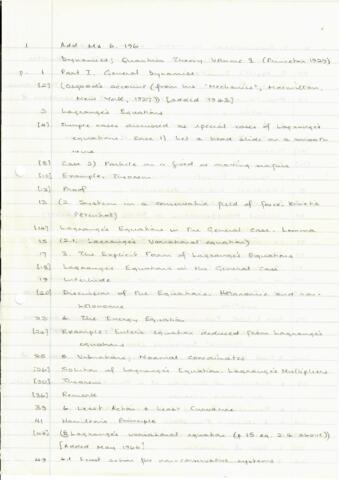 1 Add. Ms 6. 196
Dynamics; Quantum Theory. Volume 1 (Princeton 1929)
p. 1 Part I. General Dynamics
[2] (Osgood's account (from his "Mechanics", Macmillan,
New York, 1937)) [added 1963]
3 Lagrange's Equations
[4] Simple cases discussed as special cases of Lagrange's
equations. Case 1) Let a bead slide on a smooth
wire
[8] Case 2) Particle on a fixed or moving surface
Example. Theorem
Proof
13 (2. System in a conservative field of force. Kinetic
Potential)
Lagrange's Equations in the General Case. Lemma
15 (2.1. Lagrange's Variational equation)
17 3. The Explicit Form of Lagrange's Equations
[18] Lagrange's Equations in the General Case
19 Interlude
[20] Discussion of the Equations. Holonomic and non-
holonomic
23 4. The Energy Equation
[24] Example: Euler's equation deduced from Lagrange's
equations
25 5. Vibrations; Normal coordinates
[26] Solution of Lagrange's Equation. Lagrange's Multipliers
[30] Theorem
[36] Remark
39 6. Least Action & Least Curvature
41 Hamilton's Principle
Lagrange's variational equation (p 15 eq. 2.4 above))
[Added May 1966]
49 6.1 Least action for non-conservative systems